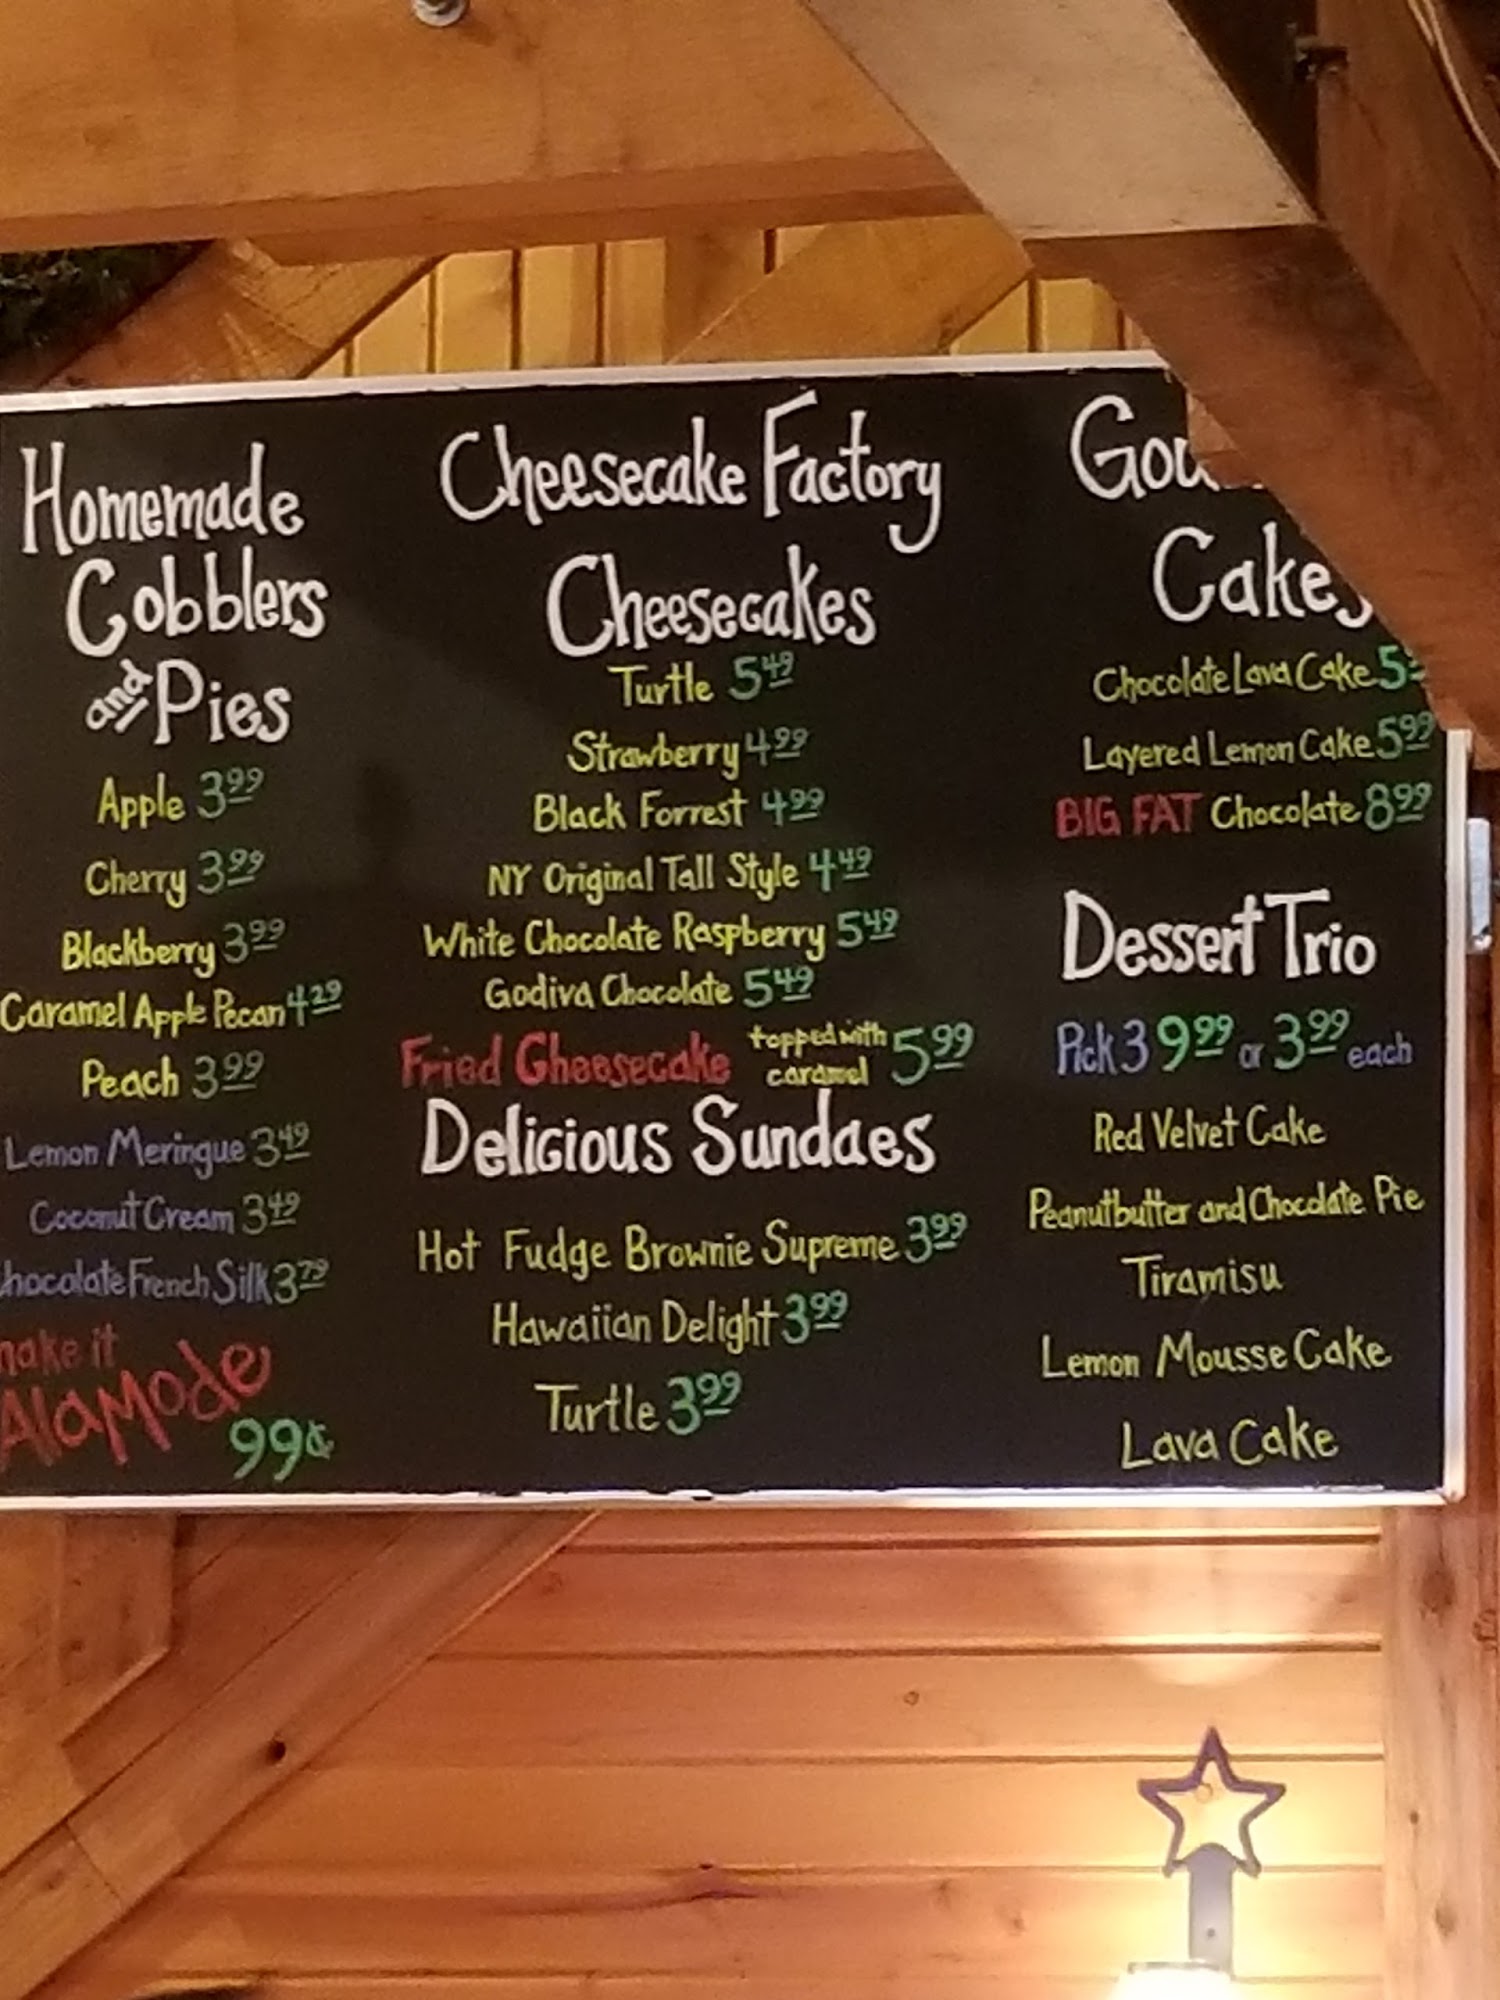 Homemade
Cobblers
and Pies
Apple 3.99
Cherry 3.99
Blackberry 3.99
Caramel Apple Pecan 4.29
Peach 3.99
Lemon Meringue 3.49
Coconut Cream 3.49
hocolate French Silk 3.79
make it
AlaMode
99¢
Cheesecake Factory
Cheesecakes
Turtle 5.49
Strawberry 4.99
Black Forrest 4.99
NY Original Tall Style 4.49
White Chocolate Raspberry 5.49
Godiva Chocolate 5.49
Fried Cheesecake topped with caramel 5.99
Delicious Sundaes
Hot Fudge Brownie Supreme 3.99
Hawaiian Delight 3.99
Turtle 3.99
Cakes
Chocolate Lava Cake
Layered Lemon Cake 5.99
BIG FAT Chocolate 8.99
Dessert Trio
Pick 3 9.99 or 3.99 each
Red Velvet Cake
Peanutbutter and Chocolate Pie
Tiramisu
Lemon Mousse Cake
Lava Cake